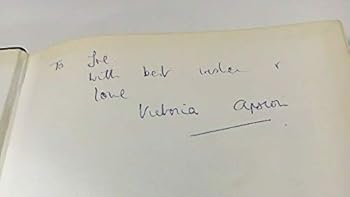 To Joe
with best wishes &
love
Victoria